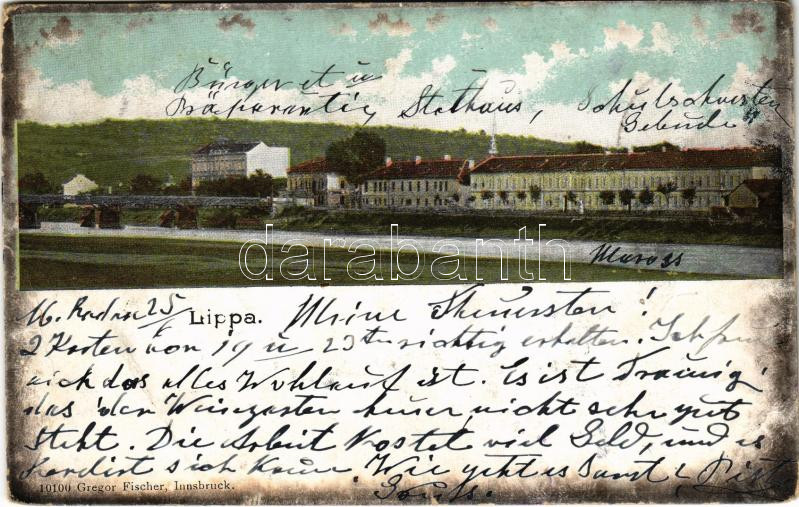 Bürger et u
Präparantig Stathaus, Schulschwesten
Gebeude
darabanth
Maross
M. Radna 25/5
Lippa.
Meine Theuersten!
2 Karten von 19 u 23ten richtig erhalten. Ich freu
mich das alles Wohlauf ist. Es ist Traurig,
das der Weingarten heuer nicht sehr gut
steht. Die Arbeit kostet viel Geld, und es
sich kaum. Wie geht es sonst
Gruss.
10100 Gregor Fischer, Innsbruck.